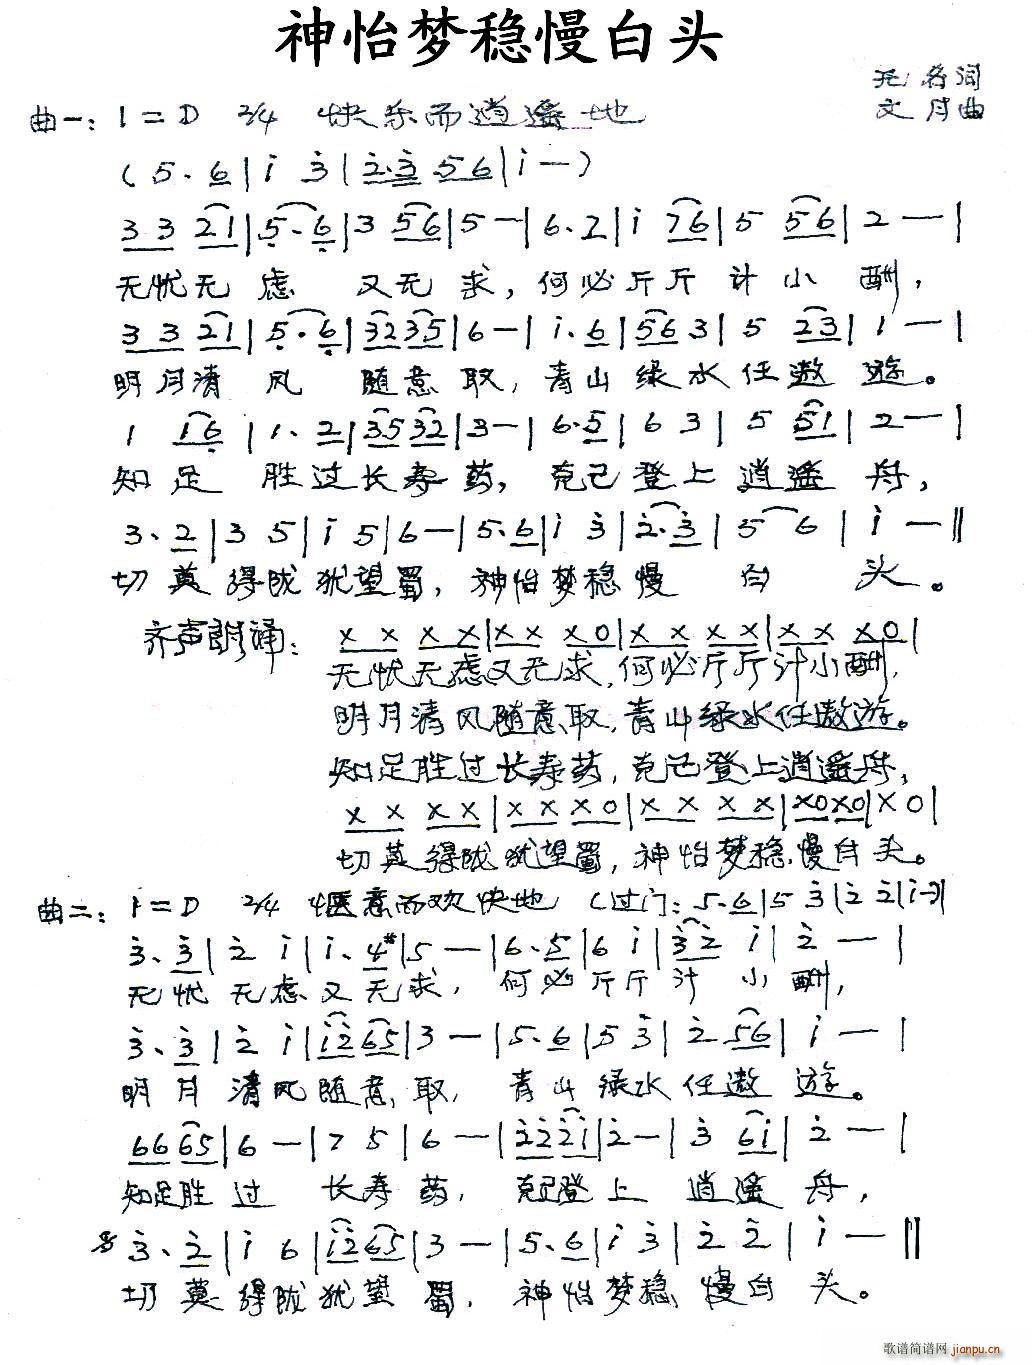 神怡梦稳慢白头
无名词
文月曲
曲一: 1=D 2/4 快乐而逍遥地
(5. 6|i 3|2.3 56|i —)
3 3 21|5. 6|3 56|5 —|6. 2|i 76|5 56|2 —|
无忧无虑 又无求，何必斤斤计小酬，
3 3 21|5. 6|32 35|6 —|i. 6|56 3|5 23|1 —|
明月清风 随意取，青山绿水任遨遊。
1 16|1. 2|35 32|3 —|6. 5|6 3|5 51|2 —|
知足 胜过长寿药，克己登上逍遥舟，
3. 2|3 5|i 5|6 —|5. 6|i 3|2. 3|5 6|i —‖
切莫得陇犹望蜀，神怡梦稳慢 白 头。
齐声朗诵: X X X X|X X X 0|X X X X|X X X 0|
无忧无虑又无求，何必斤斤计小酬，
明月清风随意取，青山绿水任遨遊。
知足胜过长寿药，克己登上逍遥舟，
X X X X|X X X 0|X X X X|X0 X0|X 0|
切莫得陇犹望蜀，神怡梦稳慢白头。
曲二: 1=D 2/4 惬意而欢快地 (过门: 5. 6|5 3|2 2|i —)|
3. 3|2 i|i. 4#|5 —|6. 5|6 i|32 i|2 —|
无忧无虑又无求，何必斤斤计小酬，
3. 3|2 i|i2 65|3 —|5. 6|5 3|2 56|i —|
明月清风随意取，青山绿水任遨遊。
66 65|6 —|7 5|6 —|22 21|2 —|3 6i|2 —|
知足胜过 长寿药，克己登上 逍遥舟，
3. 2|i 6|i2 65|3 —|5. 6|i 3|2 2|i —‖
切莫得陇犹望蜀，神怡梦稳慢白头。
歌谱简谱网 jianpu.cn